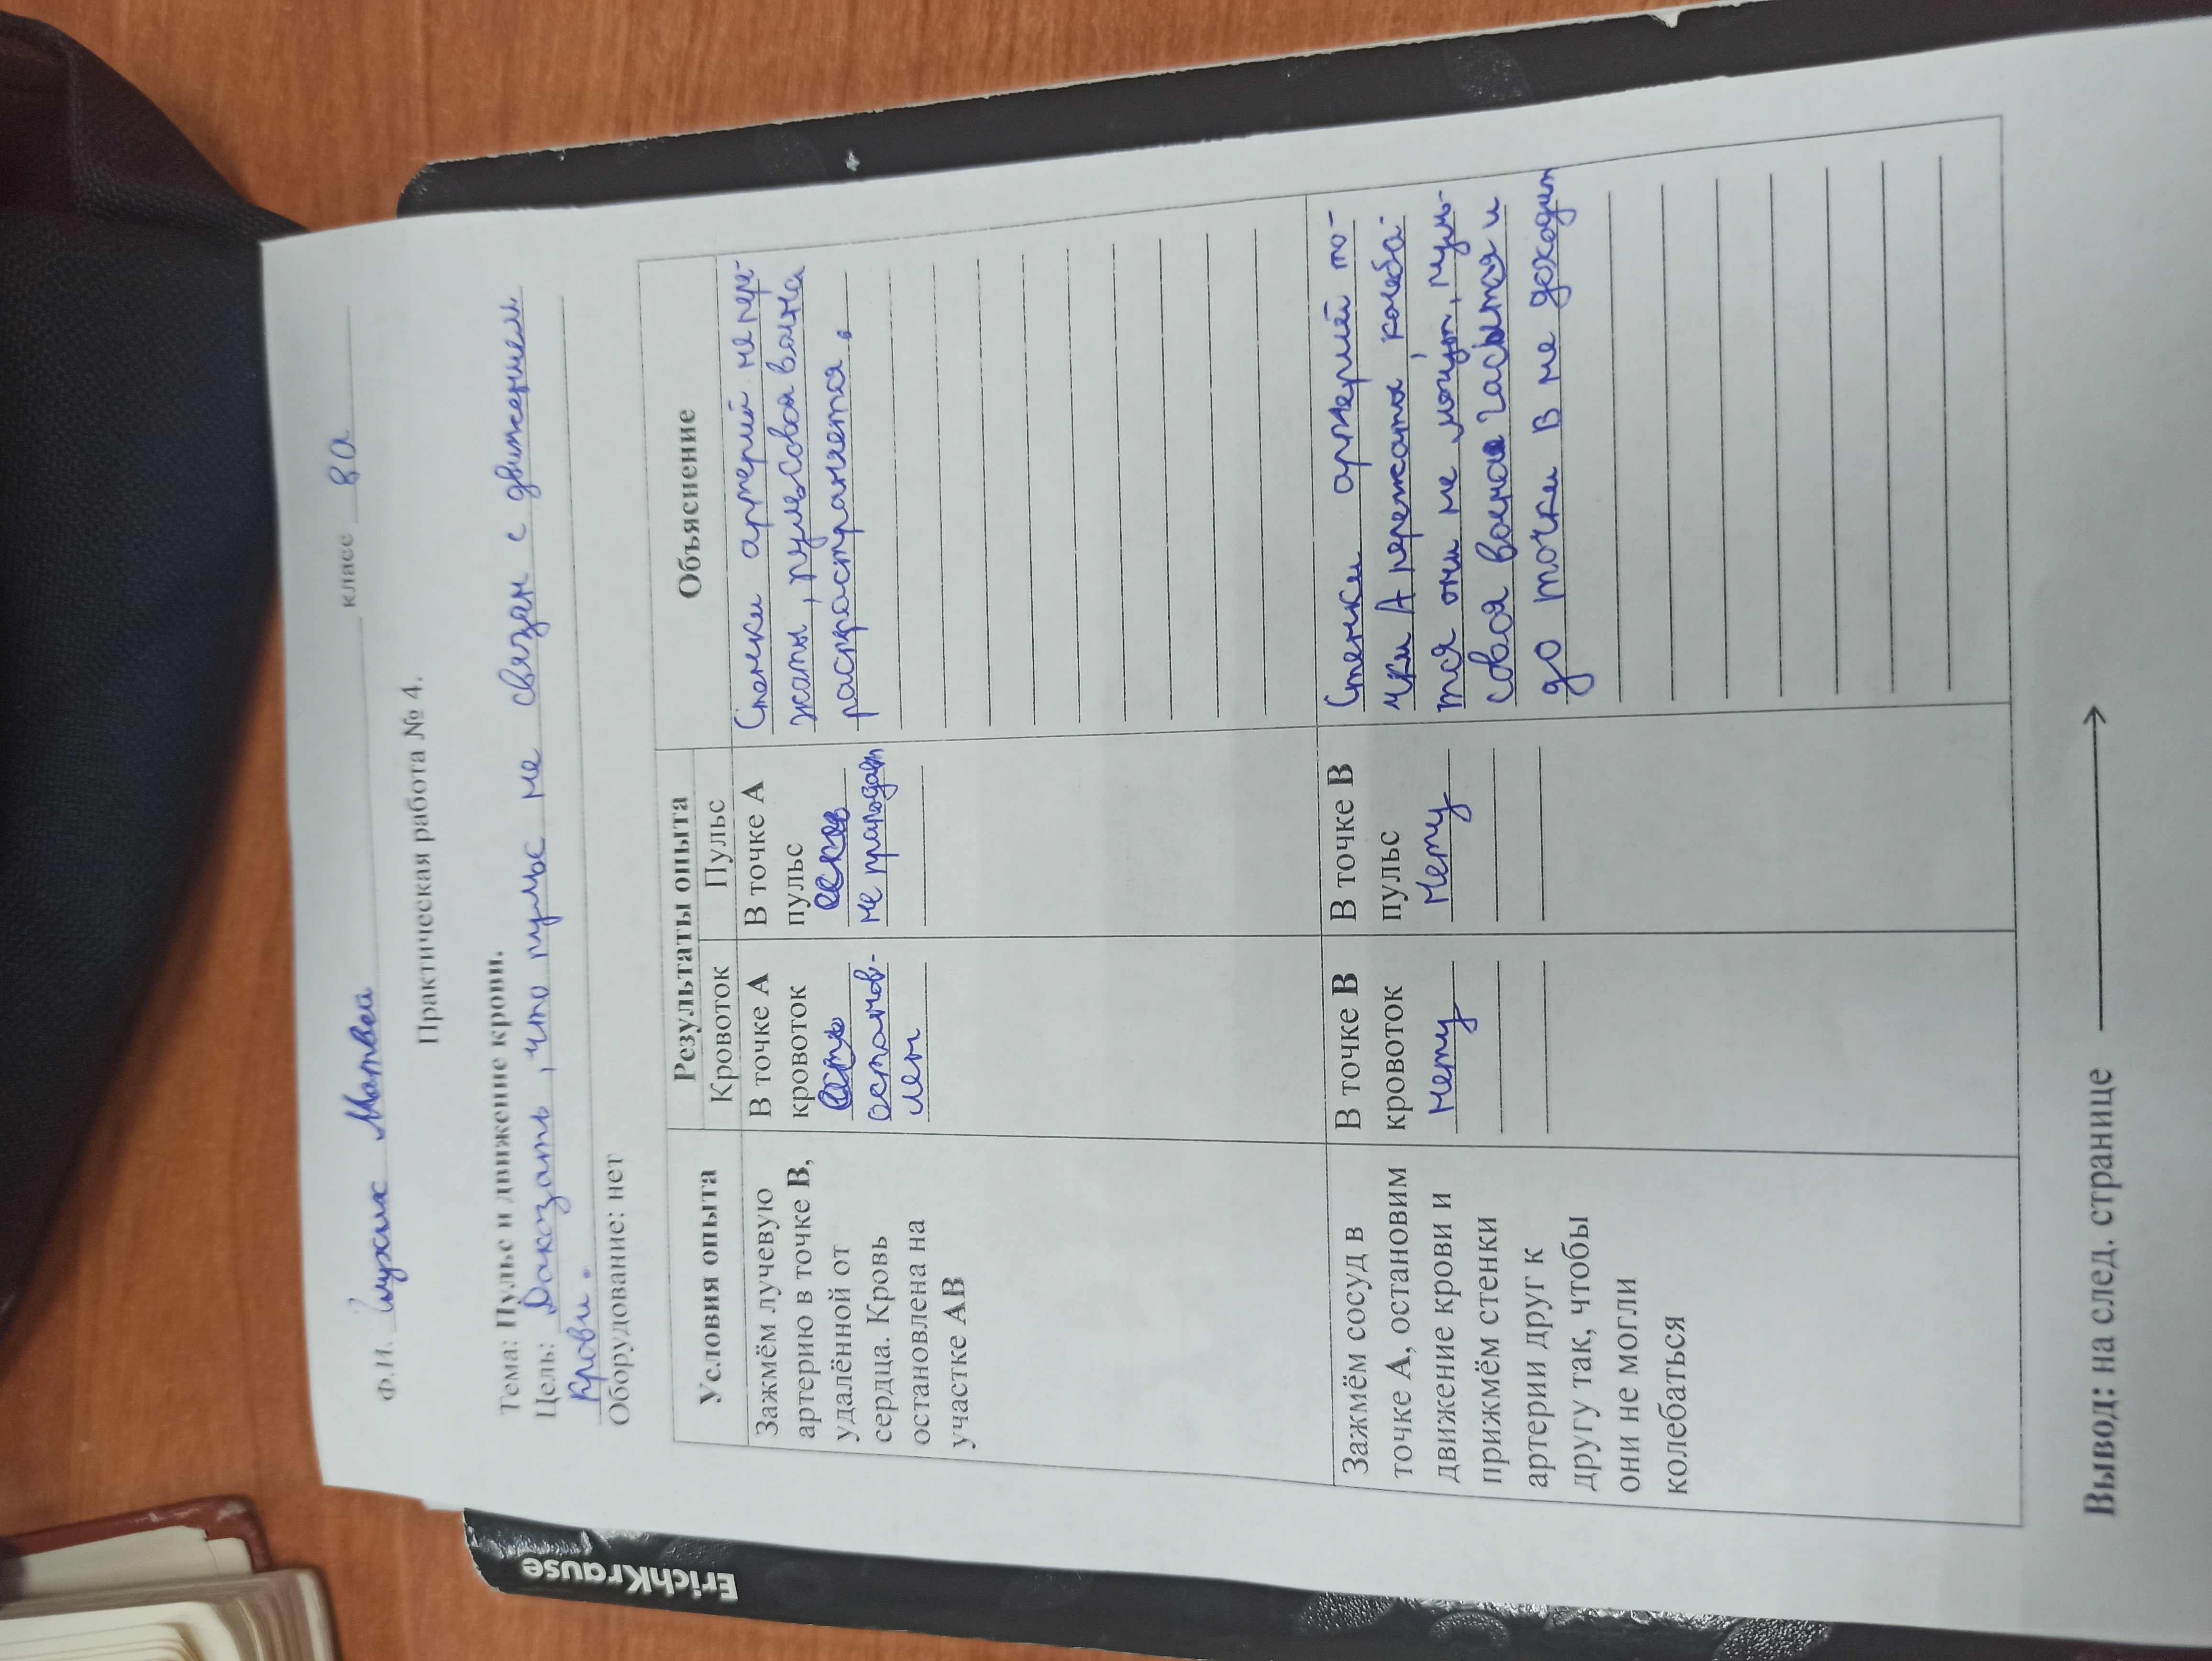 Ф.И. Глухих Матвей класс 8а
Практическая работа № 4.
Тема: Пульс и движение крови.
Цель: Доказать, что пульс не связан с движением
крови.
Оборудование: нет
Условия опыта
Результаты опыта
Кровоток
Пульс
Объяснение
Зажмём лучевую
артерию в точке В,
удалённой от
сердца. Кровь
остановлена на
участке АВ
В точке А
кровоток
останов-
лен
В точке А
пульс
не пропадает
Стенки артерий не пере-
жаты, пульсовая волна
распространяется.
Зажмём сосуд в
точке А, остановим
движение крови и
прижмём стенки
артерии друг к
другу так, чтобы
они не могли
колебаться
В точке В
кровоток
нету
В точке В
пульс
нету
Стенки артерий то-
чки А пережаты, колеба-
тся они не могут, пуль-
совая волна гасытся и
до точки В не доходит
Вывод: на след. странице
ErichKrause